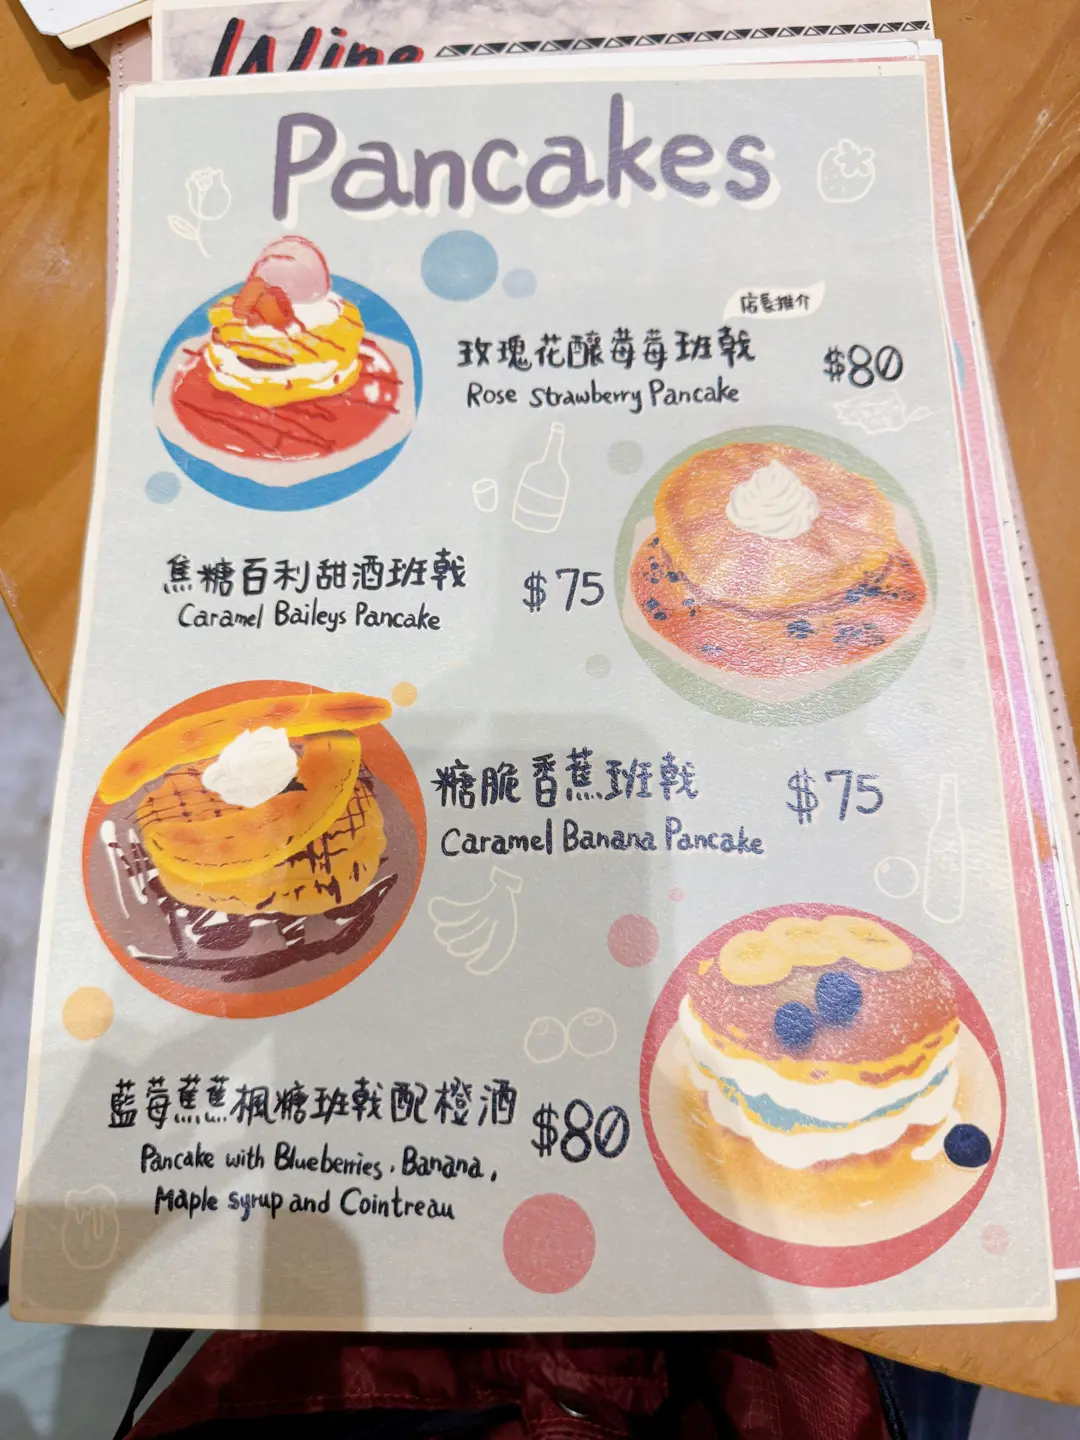 Wine
Pancakes
店長推介
玫瑰花釀莓莓班戟
Rose Strawberry Pancake
$80
焦糖百利甜酒班戟
Caramel Baileys Pancake
$75
糖脆香蕉班戟
Caramel Banana Pancake
$75
藍莓蕉蕉楓糖班戟配橙酒
Pancake with Blueberries, Banana,
Maple syrup and Cointreau
$80